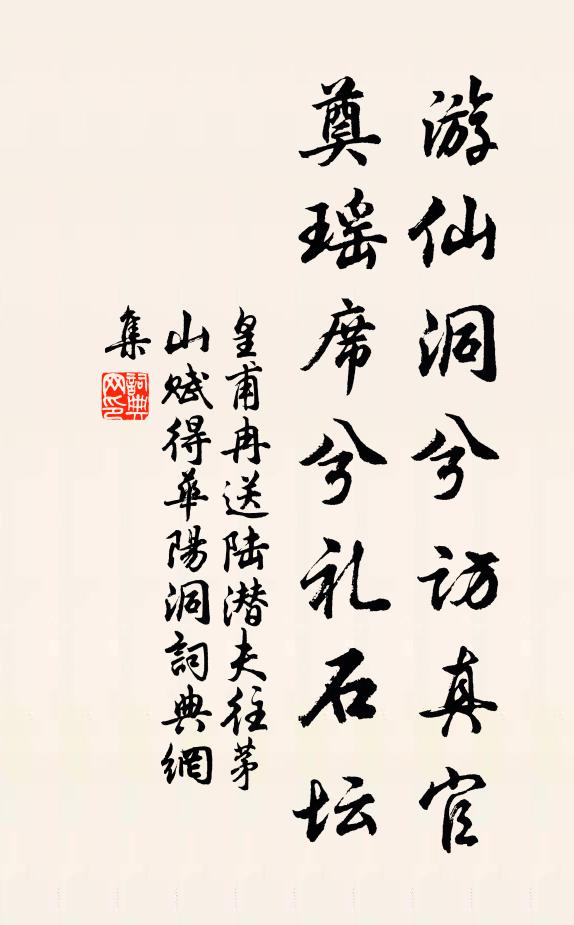 游仙洞兮访真官
奠瑶席兮礼石坛
皇甫冉送陆潜夫往茅
山赋得华陽洞詞典網
集
詞典
网印